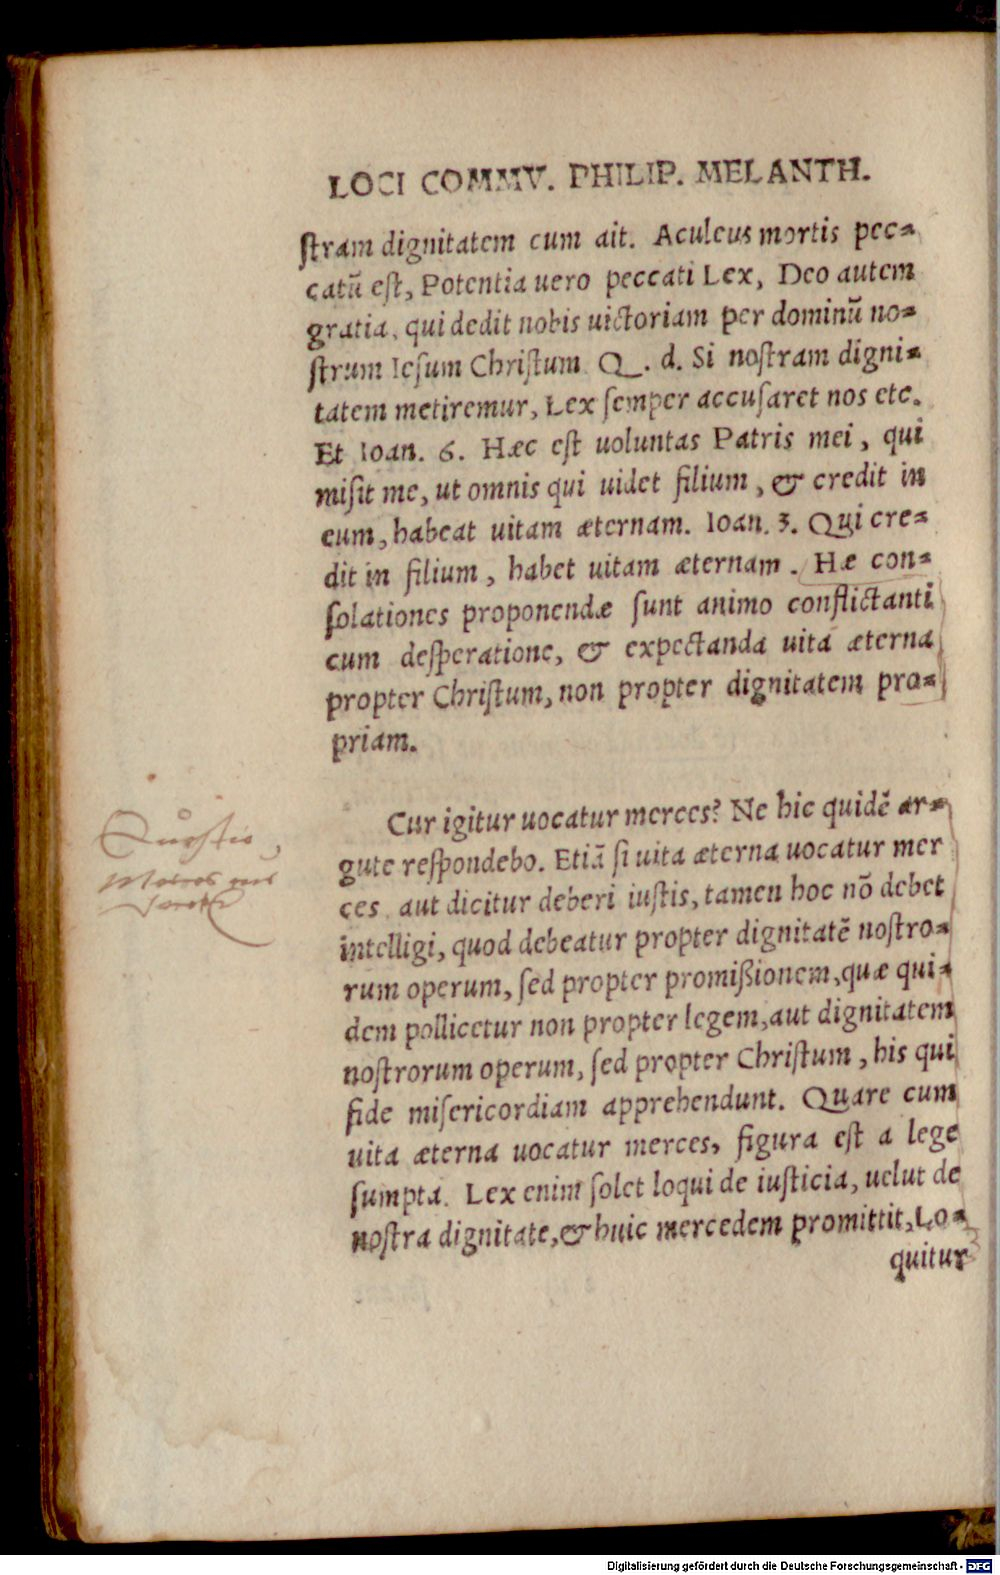 LOCI COMMV. PHILIP. MELANTH.
ſtram dignitatem cum ait. Aculeus mortis pec-
catũ eſt, Potentia uero peccati Lex, Deo autem
gratia, qui dedit nobis uictoriam per dominũ no-
ſtrum Ieſum Chriſtum. Q. d. Si noſtram digni-
tatem metiremur, Lex ſemper accuſaret nos etc.
Et Ioan. 6. Hæc eſt uoluntas Patris mei, qui
miſit me, ut omnis qui uidet filium, & credit in
eum, habeat uitam æternam. Ioan. 3. Qui cre-
dit in filium, habet uitam æternam. Hæ con-
ſolationes proponendæ ſunt animo conflictanti
cum deſperatione, & expectanda uita æterna
propter Chriſtum, non propter dignitatem pro-
priam.
Cur igitur uocatur merces? Ne hic quidẽ ar-
gute reſpondebo. Etiã ſi uita æterna uocatur mer
ces, aut dicitur deberi iuſtis, tamen hoc nõ debet
intelligi, quod debeatur propter dignitatẽ noſtro-
rum operum, ſed propter promißionem, quæ qui-
dem pollicetur non propter legem, aut dignitatem
noſtrorum operum, ſed propter Chriſtum, his qui
fide miſericordiam apprehendunt. Quare cum
uita æterna uocatur merces, figura eſt a lege
ſumpta. Lex enim ſolet loqui de iuſticia, uelut de
noſtra dignitate, & huic mercedem promittit, Lo-
quitur
Digitalisierung gefördert durch die Deutsche Forschungsgemeinschaft - DFG